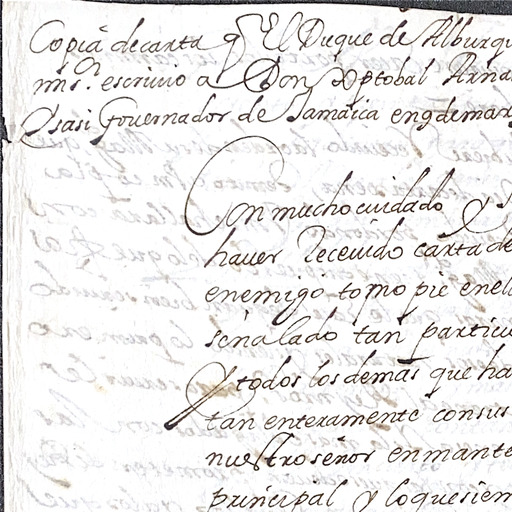 Copia de carta q El Duque de Alburqu
mi s.r escriuio a Don Xptobal Arna
Ysasi Gouernador de Jamaica en 9 de mar
Con mucho cuidado y
hauer Receuido carta de
enemigo tomo pie enel
señalado tan particu
y todos los demas que ha
tan enteramente con sus
nuestro señor en mante
principal y lo que siem